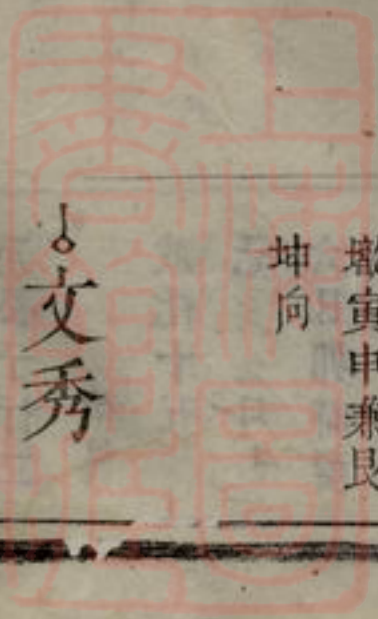 壠寅申兼艮
坤向
文秀